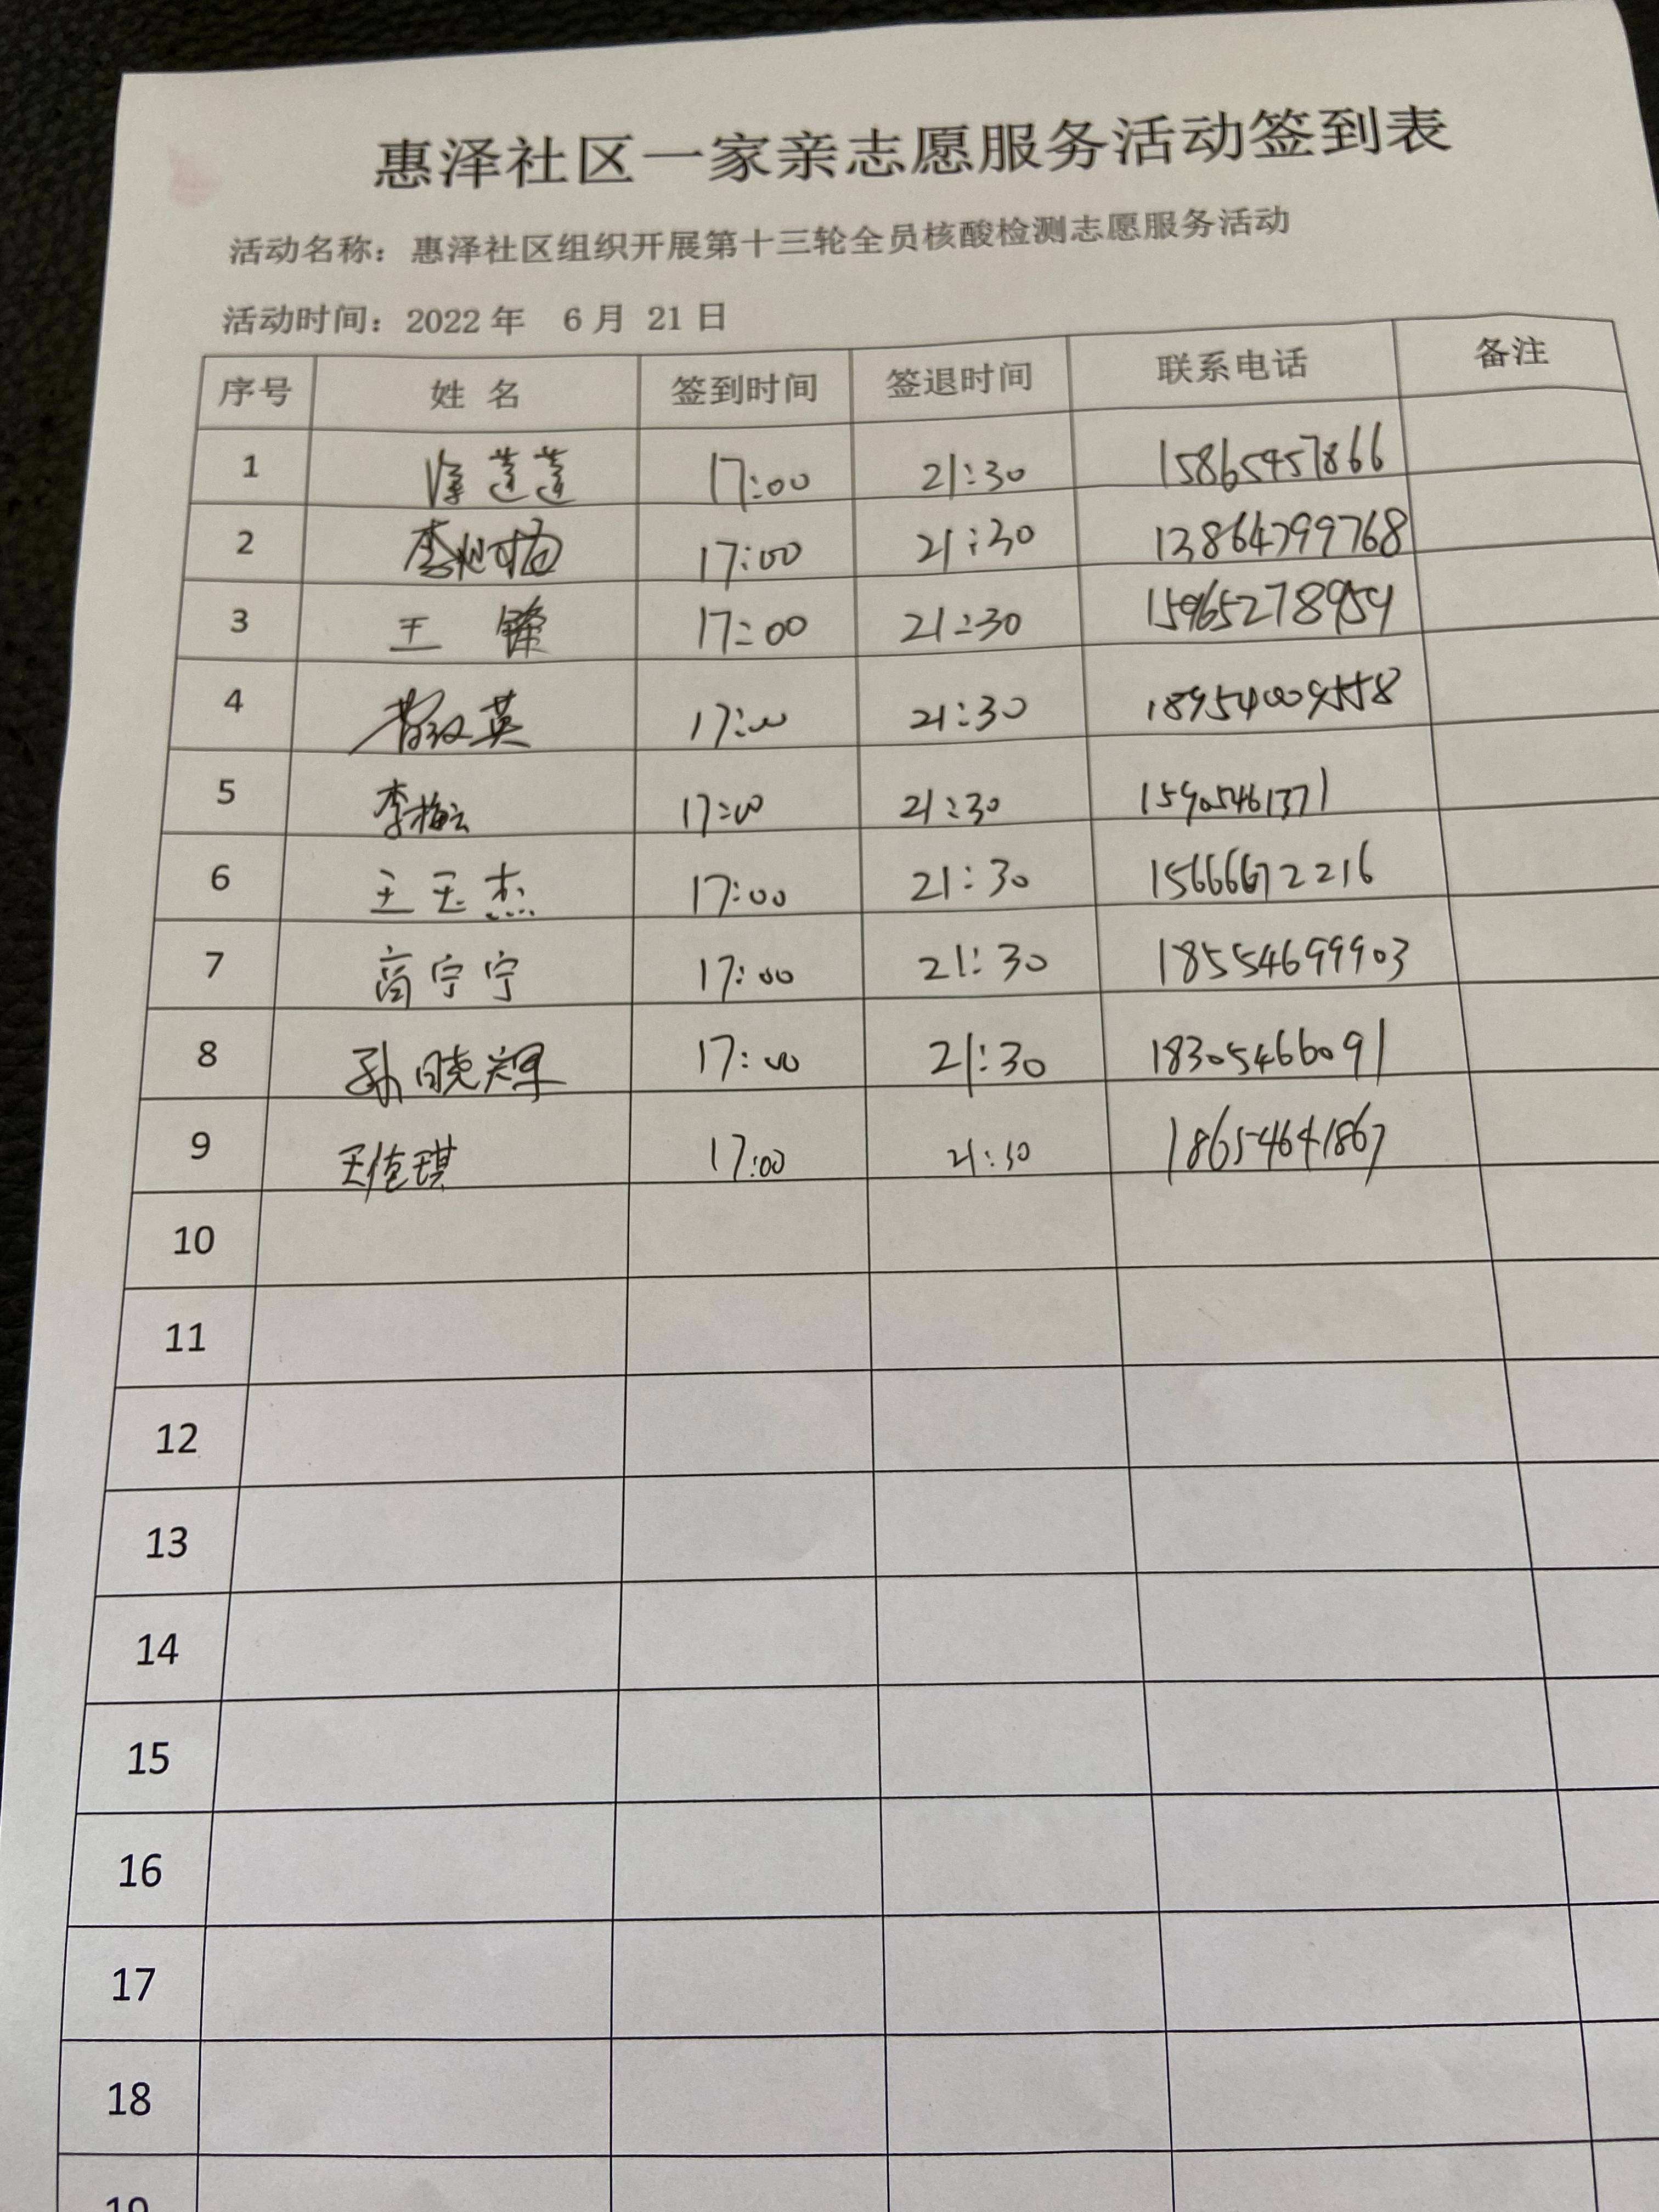 惠泽社区一家亲志愿服务活动签到表
活动名称：惠泽社区组织开展第十三轮全员核酸检测志愿服务活动
活动时间：2022 年 6 月 21 日
序号 姓 名 签到时间 签退时间 联系电话 备注
1 莲莲 17:00 21:30 15865457866
2 李 17:00 21:30 13864799768
3 王 锋 17:00 21:30 15965278954
4 英 17:00 21:30 18954009558
5 李梅云 17:00 21:30 15905461371
6 王玉杰 17:00 21:30 15666672216
7 高宁宁 17:00 21:30 18554699903
8 孙晓辉 17:00 21:30 18305466091
9 王 琪 17:00 21:30 18654641867
10
11
12
13
14
15
16
17
18
19